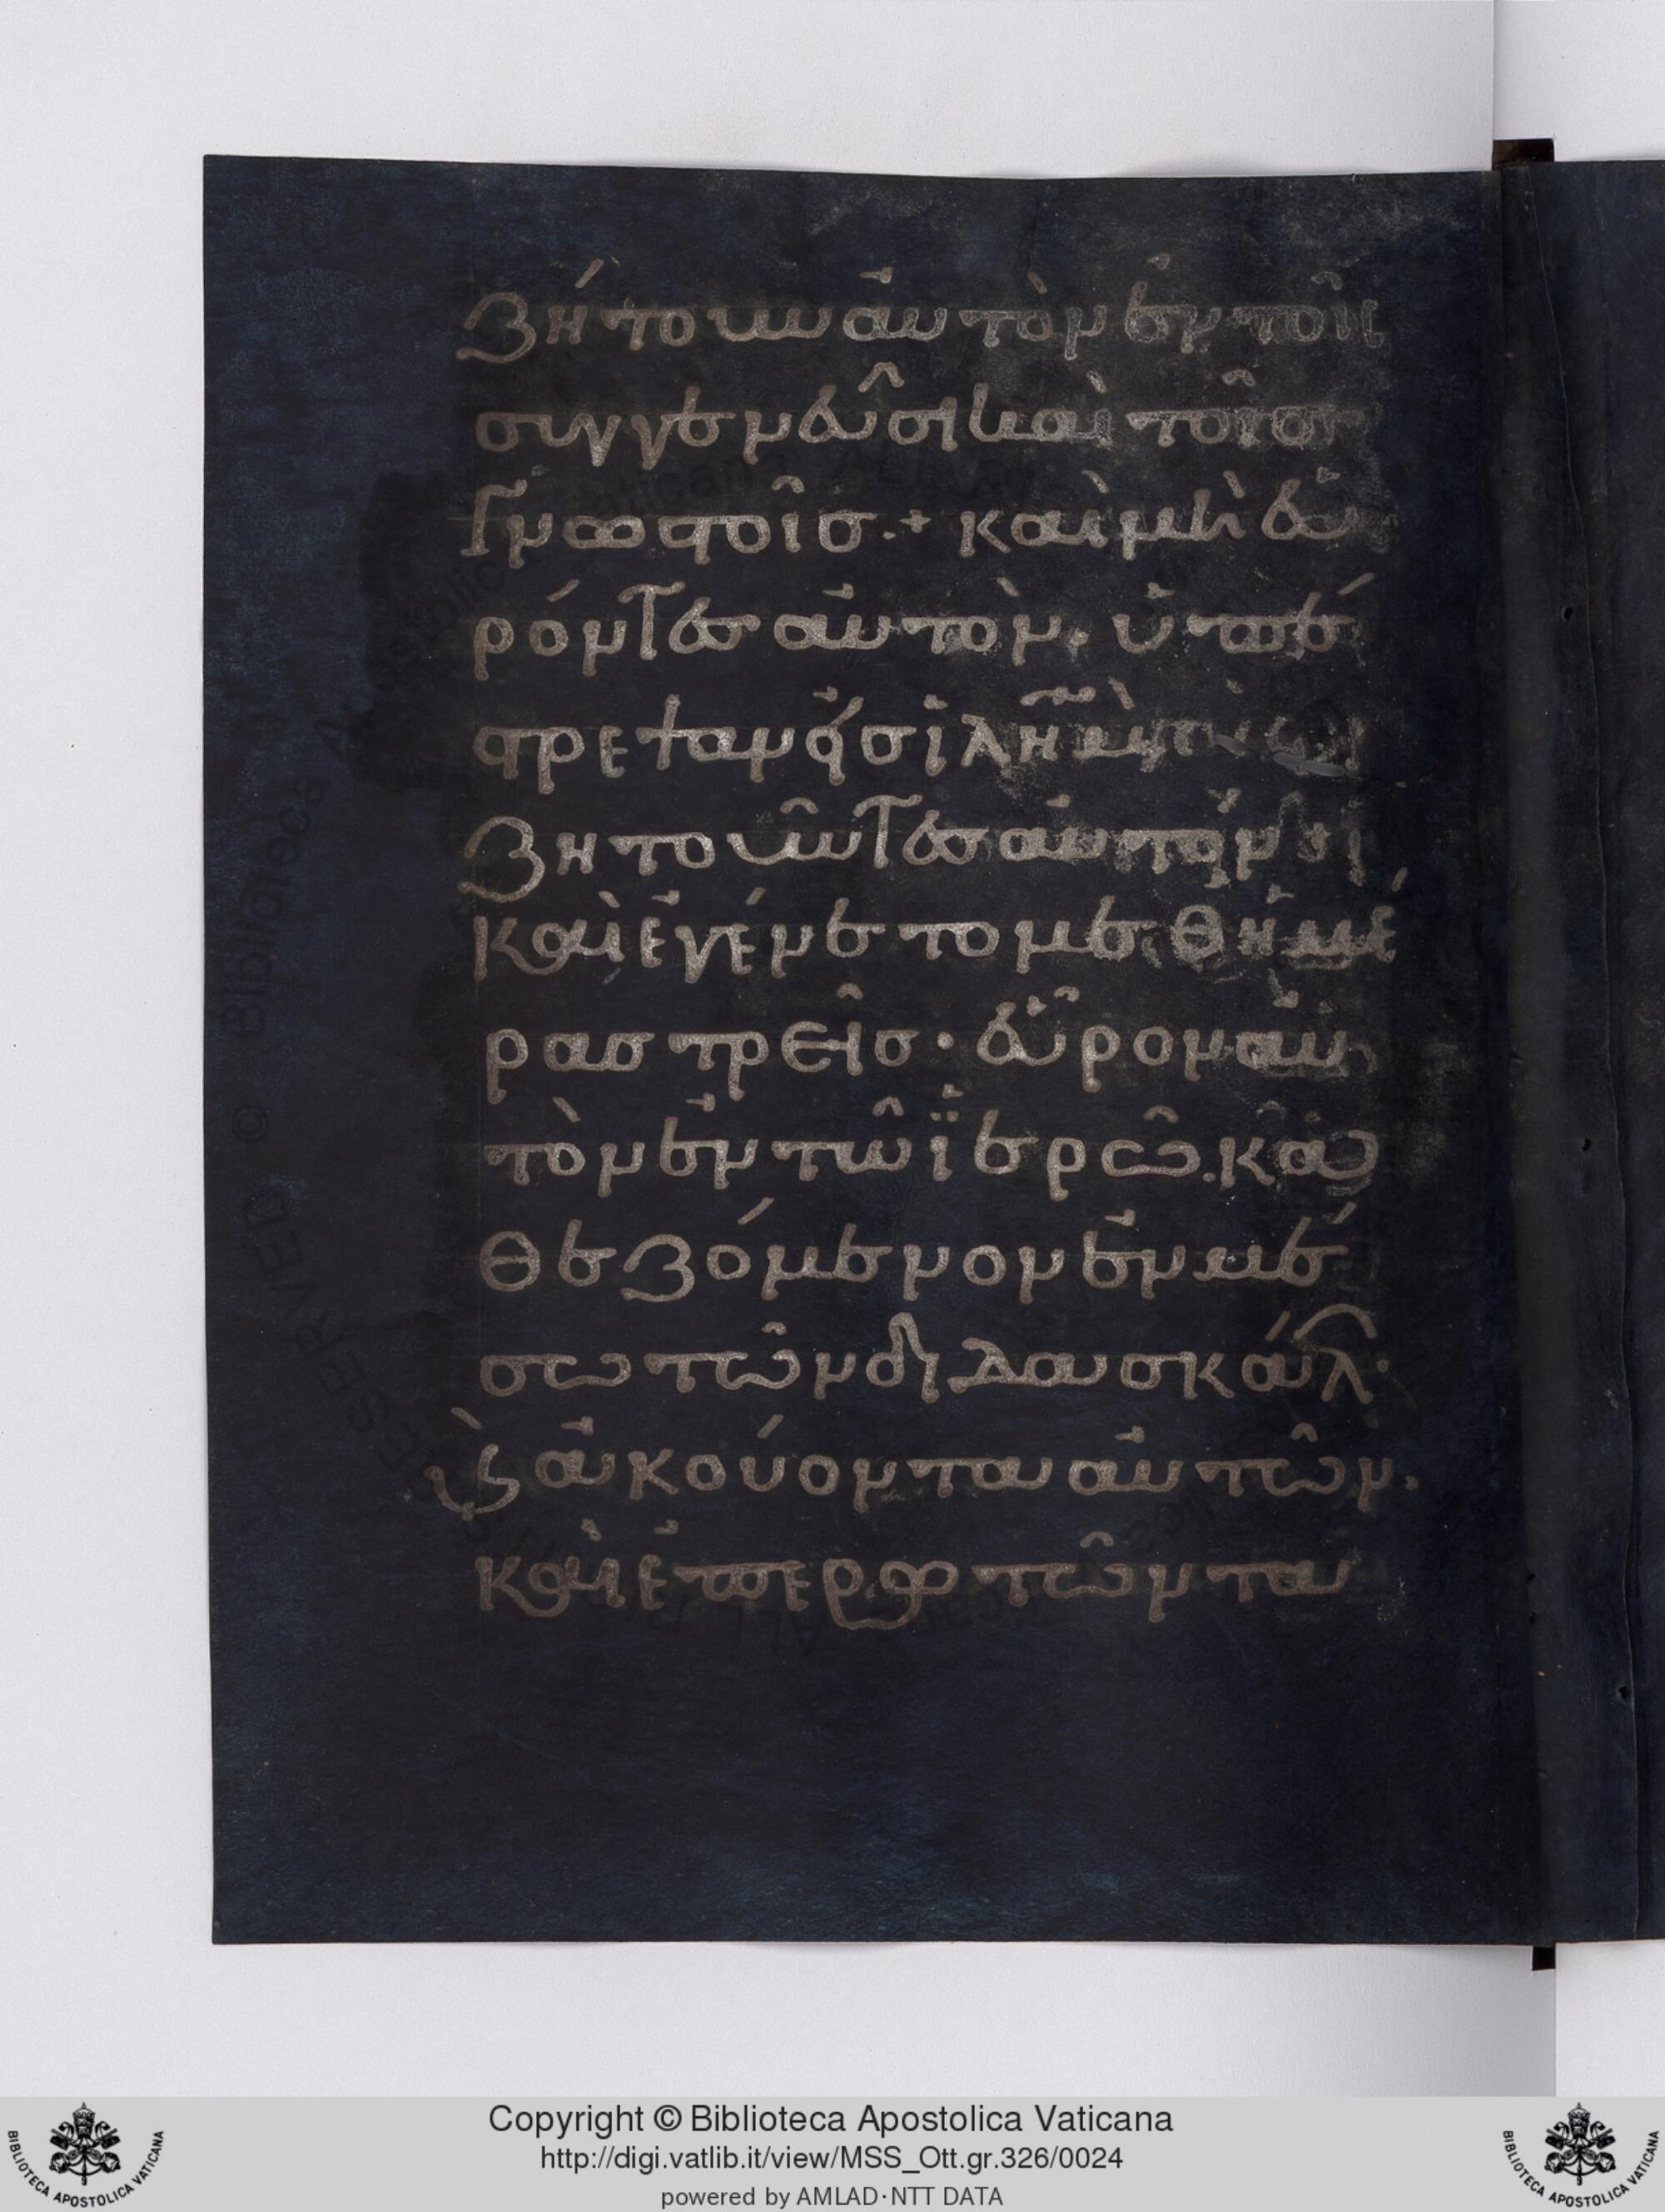 ζήτουν αὐτὸν ἐν τοῖς
συγγενεῦσι καὶ τοῖς
γνωστοῖς·+ καὶ μὴ εὑ
ρόντες αὐτὸν, ὑπέ
στρεψαν εἰσ ἱλῆμ
ζητοῦντες αὐτόν·
καὶ ἐγένετο μεθ ἡμέ
ρασ τρεῖσ· εὗρον αὐ
τὸν ἐν τῶ ἱερῶ. κα
θεζόμενον ἐν μέ
σω τῶν διδασκάλ·
καὶ ἀκούοντα αὐτῶν.
καὶ ἐπερωτῶντα
Copyright © Biblioteca Apostolica Vaticana
http://digi.vatlib.it/view/MSS_Ott.gr.326/0024
powered by AMLAD·NTT DATA
BIBLIOTECA APOSTOLICA VATICANA
BIBLIOTECA APOSTOLICA VATICANA